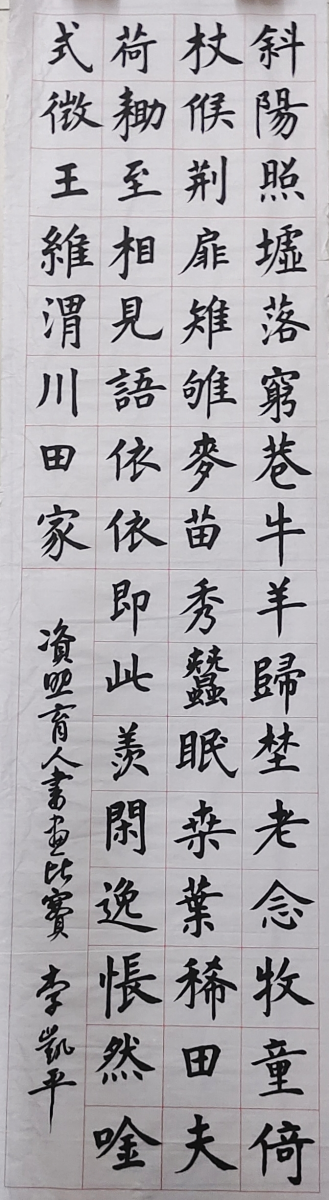 斜陽照墟落窮巷牛羊歸埜老念牧童倚
杖候荆扉雉雊麥苗秀蠶眠桒葉稀田夫
荷耡至相見語依依即此羨閑逸悵然唫
式微王維渭川田家
資助育人書画比賽 李凱平